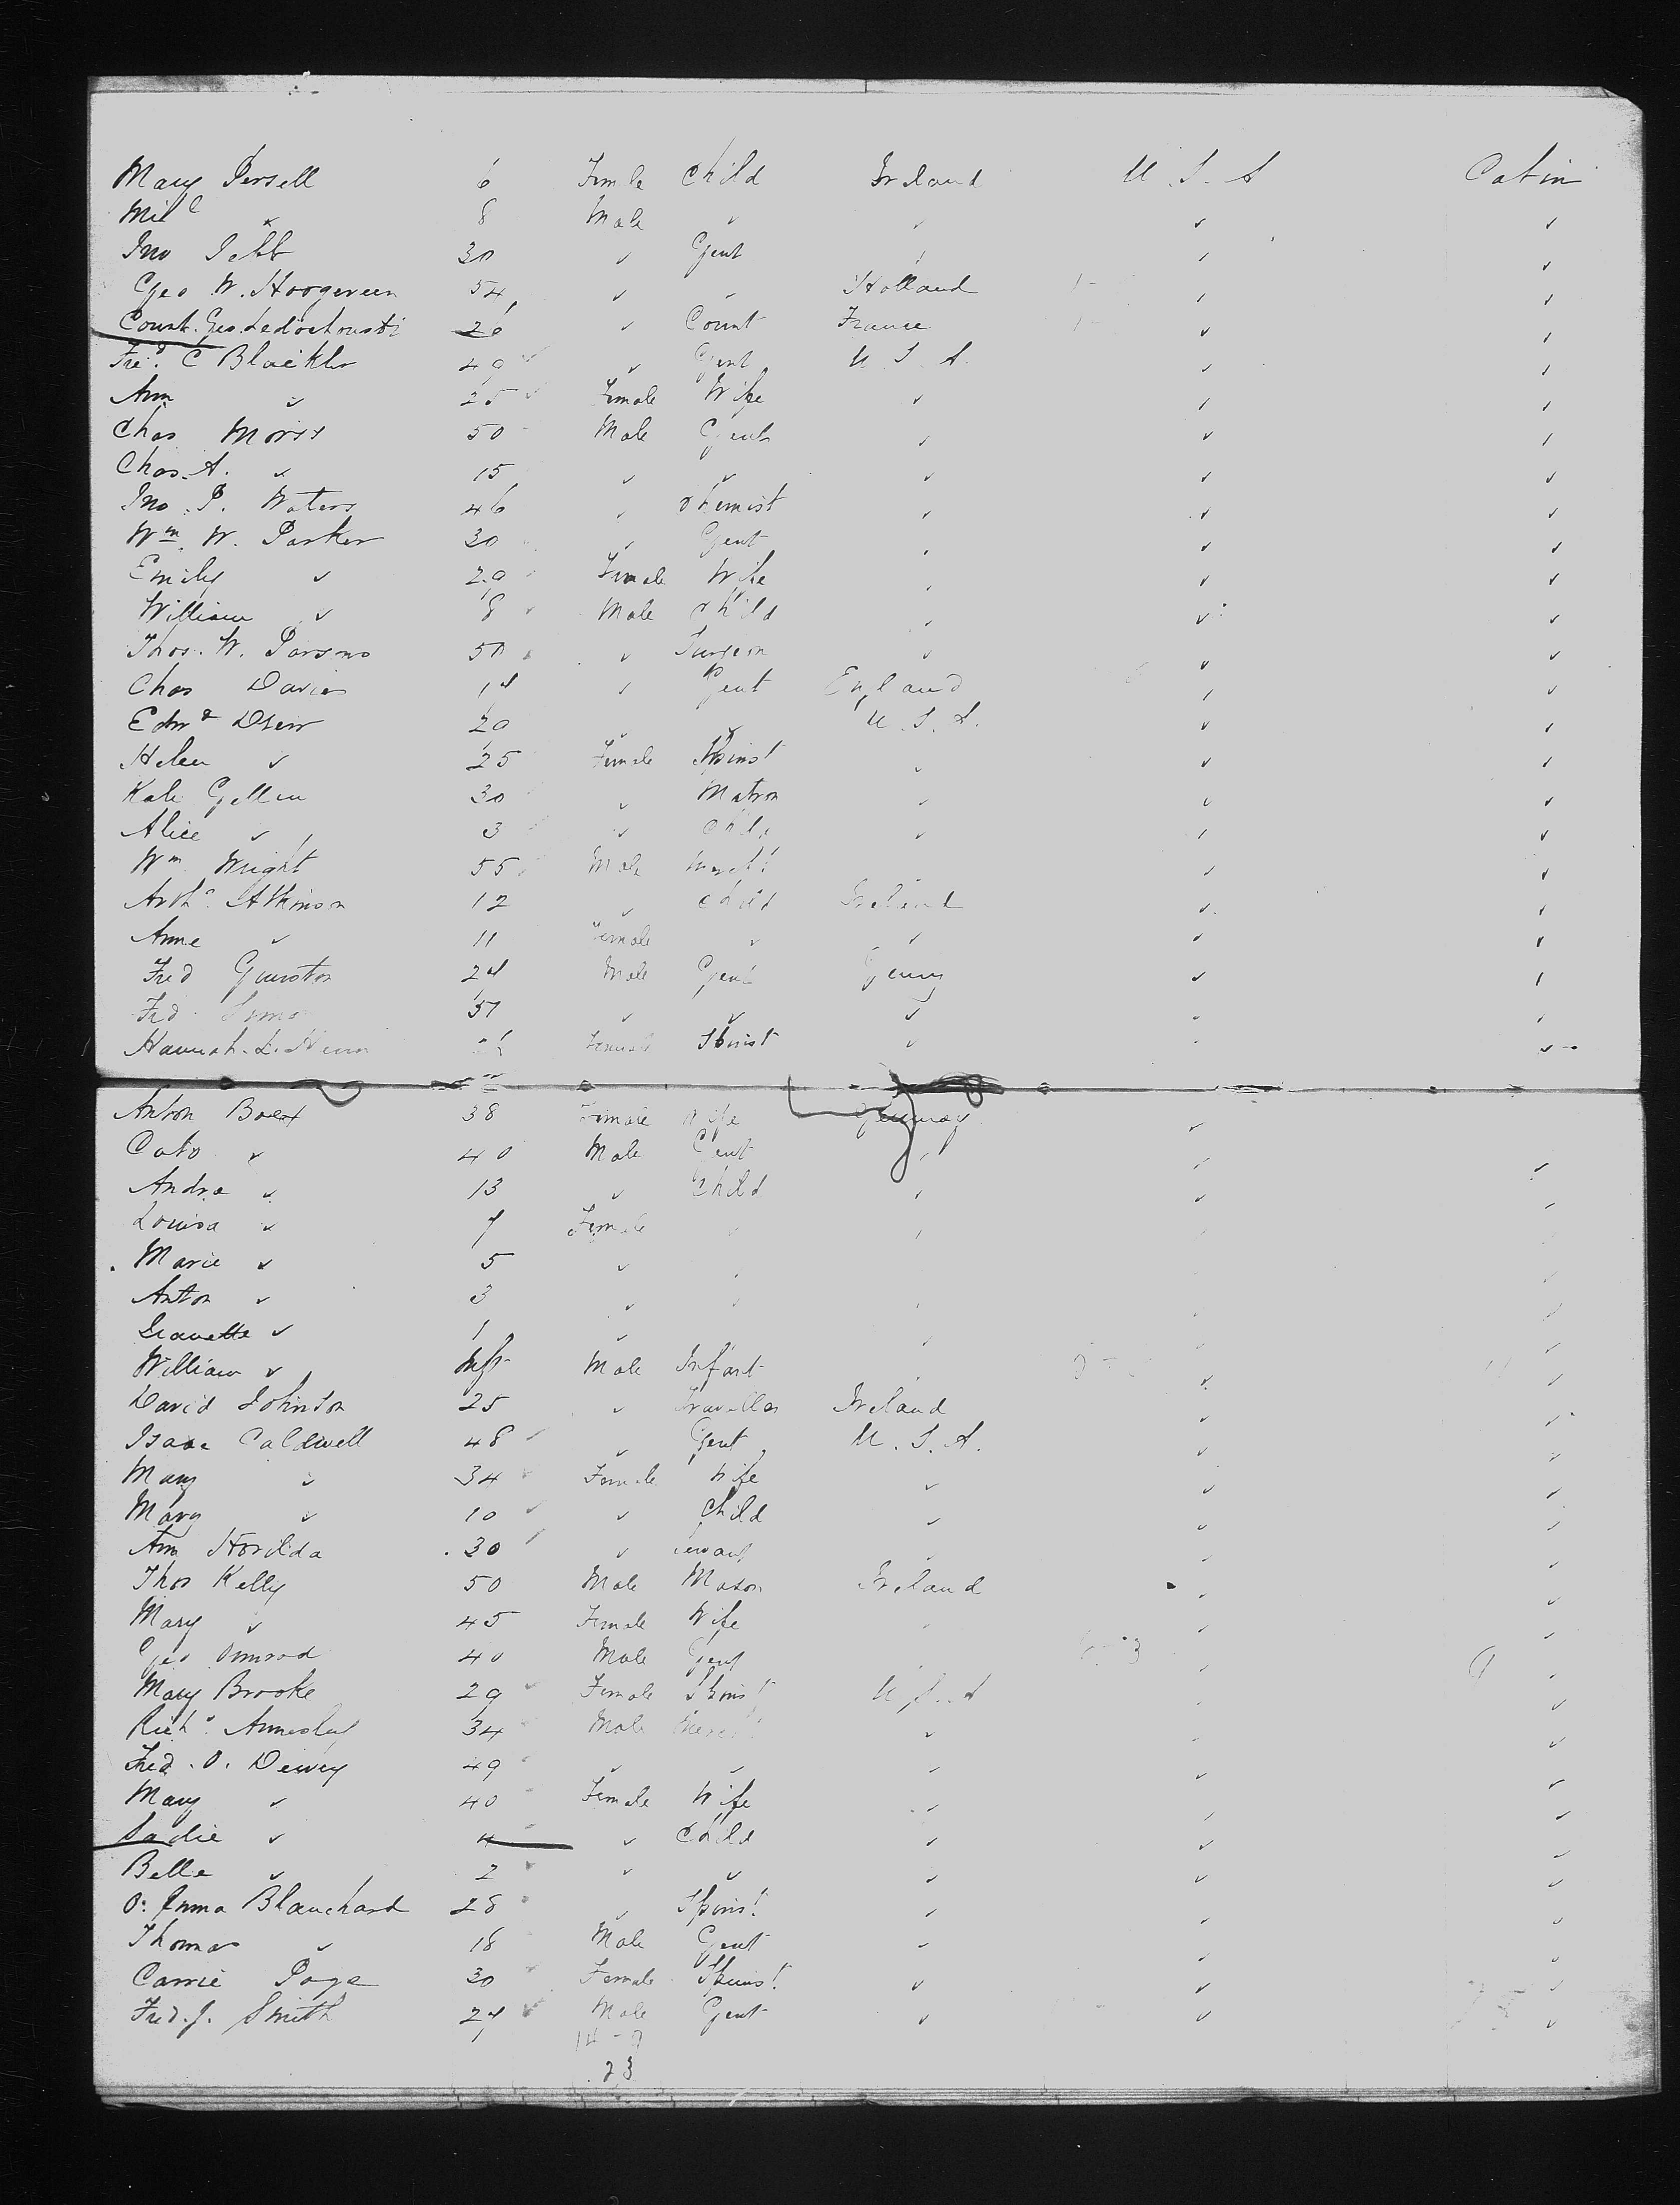 Mary Persell 6 Female Child Ireland U.S.A Cabin
Mil " 8 Male " " " "
Jno Jebb 30 " Gent " " "
Geo W. Hoogeveen 54 " " Holland " "
Count. Geo. Ledochouski 26 " Count France " "
Fred C Blackler 49 " Gent U.S.A. " "
Ann " 25 Female Wife " " "
Chas Morss 50 Male Gent " " "
Chas. A. " 15 " " " " "
Jno. P. Waters 46 " Chemist " " "
Wm. W. Parker 30 " Gent " " "
Emily " 29 Female Wife " " "
William " 8 Male Child " " "
Thos. W. Parsons 50 " Surgeon " " "
Chas Davies 14 " Gent England " "
Edwd Drew 20 " " U.S.A. " "
Helen " 25 Female Spinst " " "
Kate Gellen 30 " Matron " " "
Alice " 3 " Child " " "
Wm Wright 55 Male Mercht " " "
Arthr Atkinson 12 " Child Ireland " "
Anne " 11 Female " " " "
Fred Gunston 24 Male Gent Geny " "
Fred " " " " "
Hannah. L. Female Spinst " " "
Anton Boert 38 Female Wife Germay "
Cato " 40 Male Gent " " "
Andre " 13 " Child " " "
Louisa " 7 Female " "
Marie " 5 " " "
Anton " 3 " " " " "
Jeanette " 1 " " " "
William " Inft Male Infant " " "
David Johnson 25 " Traveller Ireland " "
Isaac Caldwell 48 " Gent U.S.A. " "
Mary " 34 Female Wife " " "
Mary " 10 " Child " " "
Ann Horilda 30 " Servant " " "
Thos Kelly 50 Male Mason Ireland " "
Mary " 45 Female Wife " " "
Geo Ormrod 40 Male Gent " "
Mary Brooke 29 Female Spinst U.S.A " "
Richd Annesley 34 Male Mercht " " "
Fred. O. Dewey 49 " " " " "
Mary " 40 Female Wife " " "
Sadie " 4 " Child " " "
Belle " 2 " " " " "
O. Anna Blanchard 28 " Spinst " " "
Thomas " 18 Male Gent " " "
Carrie Page 30 Female Spinst " " "
Fred. J. Smith 24 Male Gent " " "
14-9
23